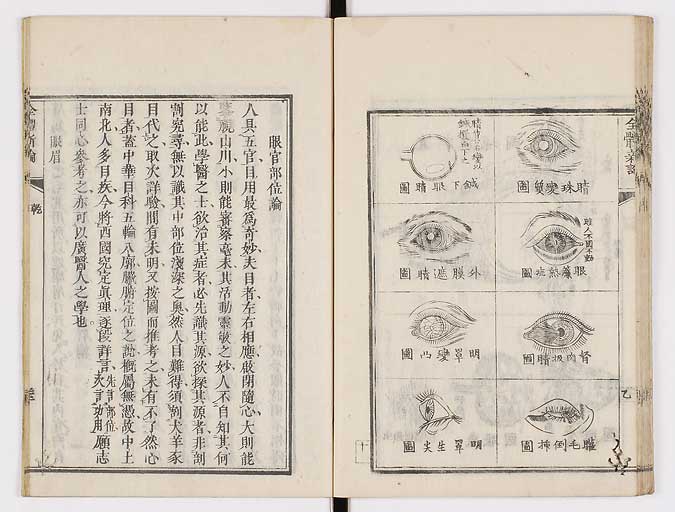 全體新論
睛珠變質圖
鍼下眼睛圖
眼簾熱症圖
外膜遮睛圖
胬肉扳睛圖
明罩變凸圖
睫毛倒插圖
明罩生尖圖
眼官部位論
人具五官、目用最爲奇妙、夫目者、左右相應、啟閉隨心、大則能
覽視山川、小則能審察毫末、其活動靈敏之妙、人不自知其何
以能此、學醫之士、欲治其症者、必先識其源、欲探其源者、非剖
割究尋、無以識其中部位淺深之奧、然人目難得、須剖犬羊豕
目代之、取次詳驗、間有未明、又按圖而推考之、未有不了然心
目者、蓋中華目科、五輪八廓、臟腑定位之說、概屬無憑、故中土
南北人多目疾、今將西國究定眞理、逐段詳言、先言部位次言功用願志
士同心參考之、亦可以廣醫人之學也。
眼眉
全體新論
乾